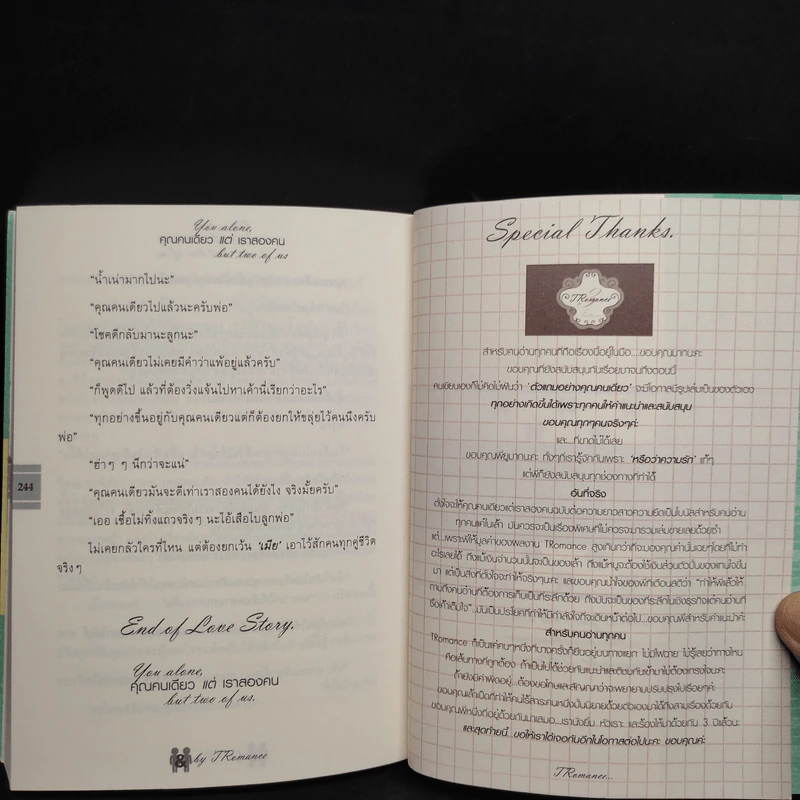 You alone,
คุณคนเดียว แต่ เราสองคน
but two of us
“น้ำเน่ามากไปนะ”
“คุณคนเดียวไปแล้วนะครับพ่อ”
“โชคดีกลับมานะลูกนะ”
“คุณคนเดียวไม่เคยมีคำว่าแพ้อยู่แล้วครับ”
“ก็พูดดีไป แล้วที่ต้องวิ่งแจ้นไปหาเค้านี่เรียกว่าอะไร”
“ทุกอย่างขึ้นอยู่กับคุณคนเดียวแต่ก็ต้องยกให้ชลุ่ยไว้คนนึงครับ
พ่อ”
“ฮ่าๆ ๆ นึกว่าจะแน่”
“คุณคนเดียวมันจะดีเท่าเราสองคนได้ยังไง จริงมั้ยครับ”
“เออ เชื้อไม่ทิ้งแถวจริงๆ นะไอ้เสือไบลูกพ่อ”
ไม่เคยกลัวใครที่ไหน แต่ต้องยกเว้น ‘เมีย’ เอาไว้สักคนทุกคู่ชีวิต
จริงๆ
244
End of Love Story.
You alone,
คุณคนเดียว แต่ เราสองคน
but two of us.
& by TRomance
Special Thanks.
TRomance
สำหรับคนอ่านทุกคนที่ถือเรื่องนี้อยู่ในมือ...ขอบคุณมากนะคะ
ขอบคุณที่ยังสนับสนุนกันเรื่อยมาจนถึงตอนนี้
คนเขียนเองก็ไม่คิดไม่ฝันว่า ‘ตัวแถมอย่างคุณคนเดียว’ จะมีโอกาสมีรูปเล่มเป็นของตัวเอง
ทุกอย่างเกิดขึ้นได้เพราะทุกคนให้คำแนะนำและสนับสนุน
ขอบคุณทุกๆคนจริงๆค่ะ
และ...ที่ขาดไม่ได้เลย
ขอบคุณพี่ยูมากนะคะ ทั้งๆที่เรารู้จักกันเพราะ ‘หรือว่าความรัก’ แท้ๆ
แต่พี่ก็ยังสนับสนุนทุกช่องทางที่ทำได้
อันที่จริง
ตั้งใจจะให้คุณคนเดียวแต่เราสองคนฉบับต่อความยาวสาวความยืดเป็นโบนัสสำหรับคนอ่าน
ทุกคนแค่ในเล้า มันควรจะเป็นเรื่องพิเศษที่ไม่ควรจะมารวมเล่มขายเลยด้วยซ้ำ
แต่...เพราะพี่ให้มูลค่าของผลงาน TRomance สูงเกินกว่าที่จะมองคุณค่านั้นเฉยๆโดยที่ไม่ทำ
อะไรเลยได้ ถึงแม้เงินจำนวนนั้นจะเป็นของเล้า ถึงแม้หนูจะต้องใช้เงินส่วนตัวปั่นของแทนใจขึ้น
มา แต่เป็นสิ่งที่ตั้งใจจะทำให้จริงๆนะคะ และขอบคุณน้ำใจของพี่ที่เตือนสติว่า “ทำให้พี่แล้วให้
ถามถึงคนอ่านที่ต้องการเก็บเป็นที่ระลึกด้วย ถึงมันจะเป็นของที่ระลึกในเชิงธุรกิจแต่คนอ่านที่
ซื้อเค้าเต็มใจ”...มันเป็นประโยคที่ทำให้มีกำลังใจที่จะเดินหน้าต่อไป...ขอบคุณพี่สำหรับคำแนะนำค่ะ
สำหรับคนอ่านทุกคน
TRomance ก็เป็นแค่คนๆหนึ่งที่บางครั้งก็ยืนอยู่บนทางแยก ไม่มีไฟฉาย ไม่รู้เลยว่าทางไหน
คือเส้นทางที่ถูกต้อง ถ้าเป็นไปได้ช่วยกันแนะนำและติชมกันเข้ามาไม่ต้องเกรงใจนะคะ
ถ้ายังมีคำผิดอยู่...ต้องขอโทษและสัญญาว่าจะพยายามปรับปรุงไปเรื่อยๆค่ะ
ขอบคุณเล้าเป็ดที่ทำให้คนไร้สาระคนหนึ่งปั่นนิยายด้วยตัวเองมาได้ถึงสามเรื่องด้วยกัน
ขอบคุณพี่หนึ่งที่อยู่ด้วยกันมาเสมอ...เรานั่งยิ้ม หัวเราะ และร้องไห้มาด้วยกัน 3 ปีแล้วนะ
และสุดท้ายนี้...ขอให้เราได้เจอกันอีกในโอกาสต่อไปนะคะ ขอบคุณค่ะ
TRomance...